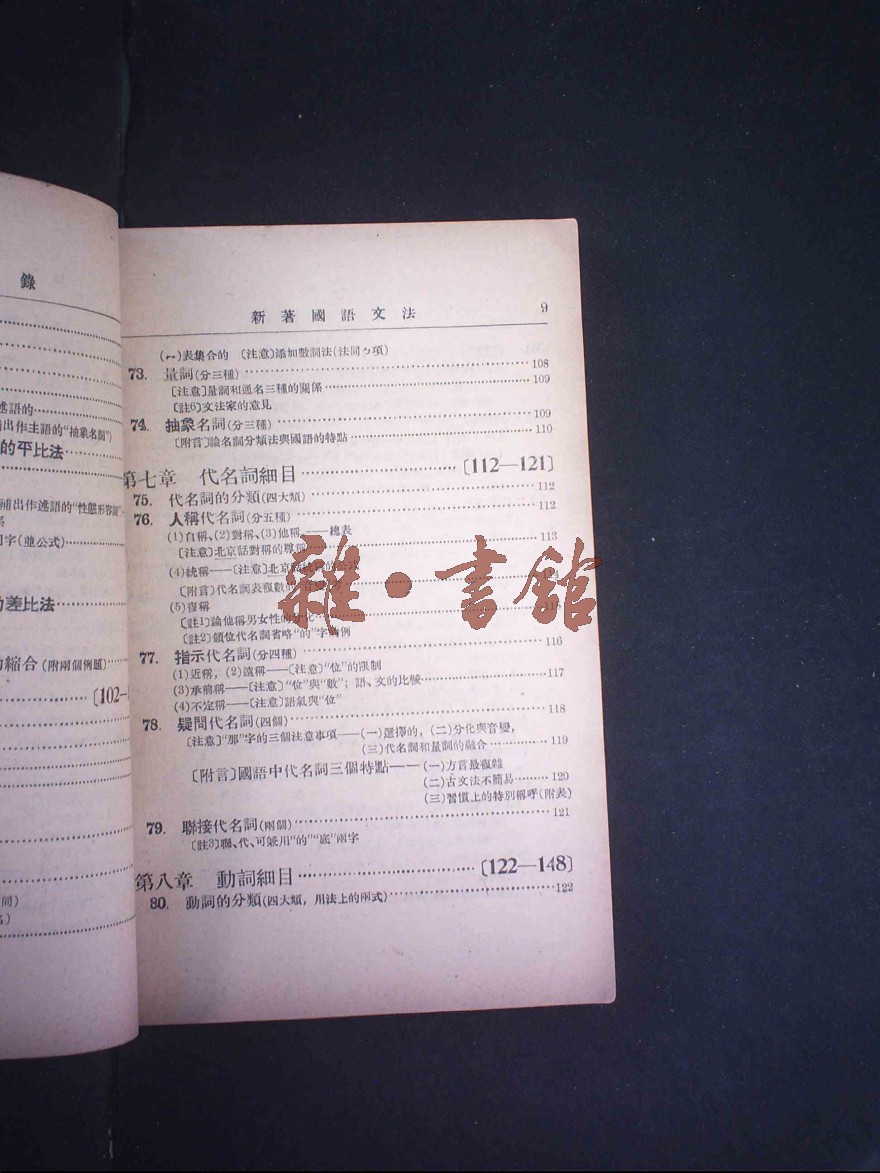 錄
述語的
出作主語的“抽象名詞”)
的平比法
補出作述語的“性態形容詞”
司字(並公式)
差比法
縮合(附兩個例題)
〔102—
間)
新著國語文法 9
表集合的 〔注意〕添加數詞法(法同ㄅ項)
73. 量詞(分三種) 108
〔注意〕量詞和通名三種的關係 109
〔註6〕文法家的意見
74. 抽象名詞(分三種) 109
〔附言〕論名詞分類法與國語的特點 110
第七章 代名詞細目 〔112—121〕
75. 代名詞的分類(四大類) 112
76. 人稱代名詞(分五種) 112
(1)自稱、(2)對稱、(3)他稱——總表
〔注意〕北京話對稱的尊稱 113
(4)統稱——〔注意〕北京
〔附言〕代名詞表複數的
(5)複稱 115
〔註1〕論他稱男女性的分化
〔註2〕領位代名詞省略“的”字 例
77. 指示代名詞(分四種) 116
(1)近稱,(2)遠稱——〔注意〕“位”的限制
(3)承前稱——〔注意〕“位”與“數”;語、文的比較 117
(4)不定稱——〔注意〕語氣與“位”
78. 疑問代名詞(四個) 118
〔注意〕“那”字的三個注意事項——(一)選擇的,(二)分化與音變,
(三)代名詞和量詞的融合 119
〔附言〕國語中代名詞三個特點——(一)方言最複雜
(二)古文法不簡易 120
(三)習慣上的特別稱呼(附表)
79. 聯接代名詞(兩個) 121
〔註3〕聯、代、可兼用“的”“底”兩字
第八章 動詞細目 〔122—148〕
80. 動詞的分類(四大類,用法上的兩式) 122
雜·書館